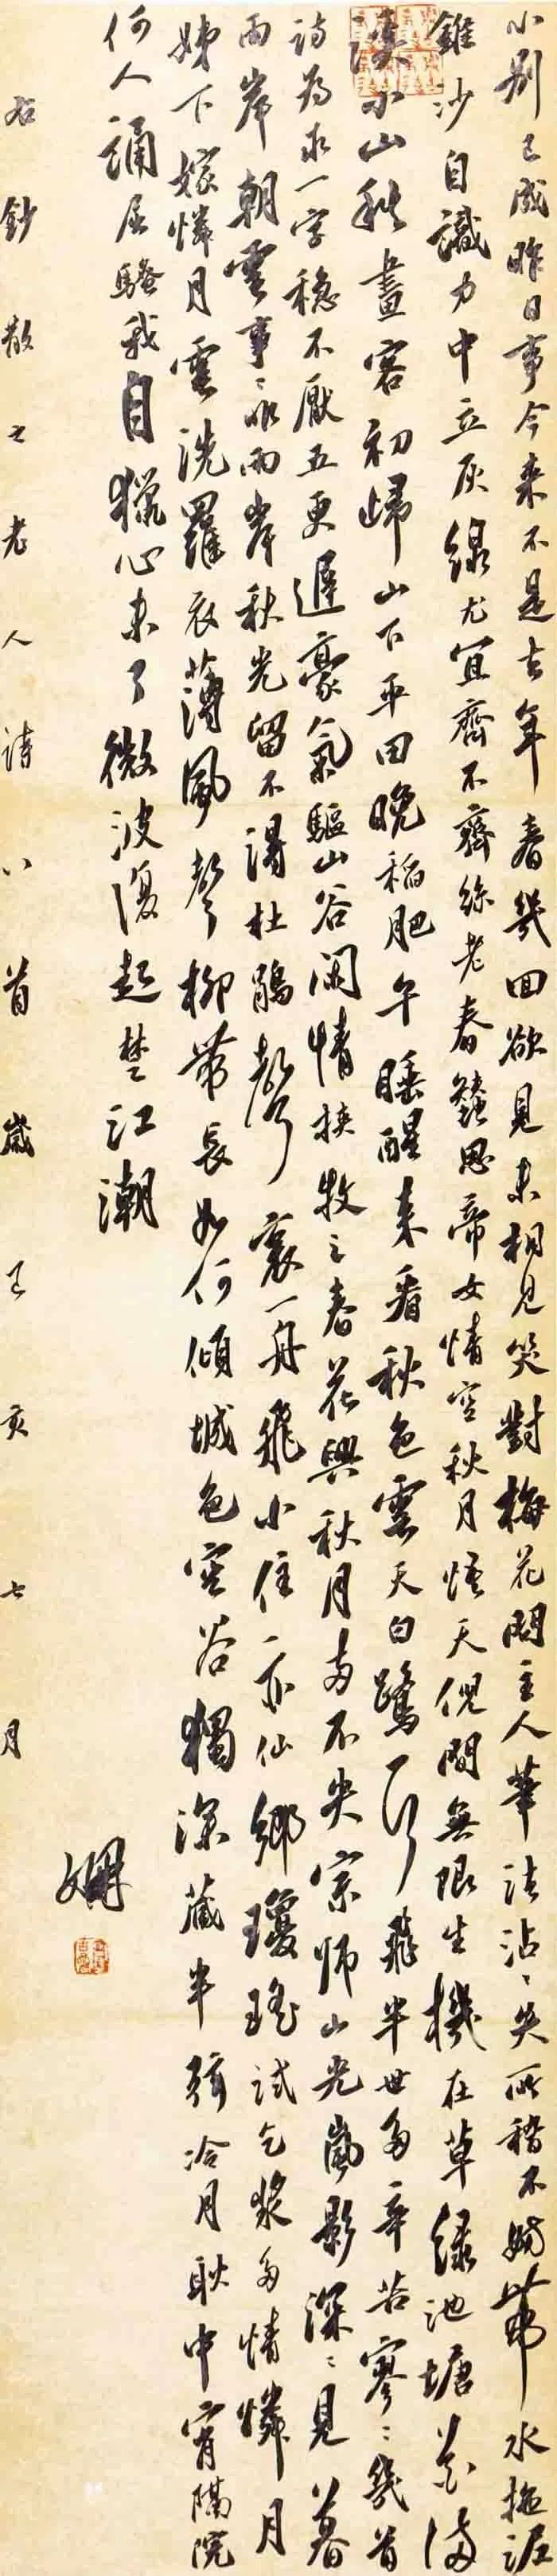 小别已成昨日事今来不是去年春几回欲见未相见笑对梅花问主人笔法沾沾失所稽不妨带水拖泥
锥沙自识力中立屋绿尤宜齐不齐丝老春蚕思帝女情空秋月悟天倪间无限生机在草绿池塘花满
溪小山秋画客初归山下平田晚稻肥午睡醒来看秋色云天白鹭一行飞半世多辛苦寥寥几首
诗为求一字稳不厌五更迟豪气驱山谷闲情挟牧之春花与秋月両不失宗师山光岚影深深见暮
雨岸朝云事事非两岸秋光留不得杜鹃声里一舟飞小住亦仙乡琼瑶试乞浆多情怜月
姊下嫁怜月云洗罗衣薄风声柳带长如何倾城色空谷独深藏半弯冷月耿中宵隔院
何人诵屈骚我自猎心未了微波复起楚江潮
右钞散之老人诗八首岁丁亥七月